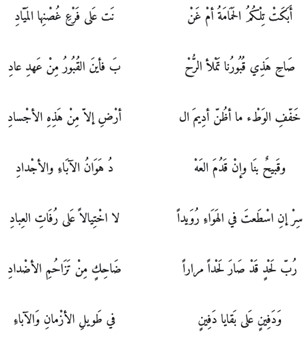 أَبَكَتْ تِلْكُمُ الحَمَامَةُ أمْ غَنْ نَت عَلى فَرْعِ غُصْنِها المَيّادِ
صَاحِ هَذِي قُبُورُنا تَمْلأ الرُّحْ بَ فأينَ القُبُورُ مِنْ عَهدِ عادِ
خَفّفِ الوَطْء ما أظُنّ أدِيمَ ال أرْضِ إلاّ مِنْ هَذِهِ الأجْسادِ
وقَبيحٌ بنَا وإنْ قَدُمَ العَهْ دُ هَوَانُ الآبَاءِ والأجْدادِ
سِرْ إنِ اسْطَعتَ في الهَوَاءِ رُوَيداً لا اخْتِيالاً عَلى رُفَاتِ العِبادِ
رُبّ لَحْدٍ قَدْ صَارَ لَحْداً مراراً ضَاحِكٍ مِنْ تَزَاحُمِ الأضْدادِ
وَدَفِينٍ عَلى بَقايا دَفِينٍ في طَويلِ الأزْمانِ وَالآباءِ